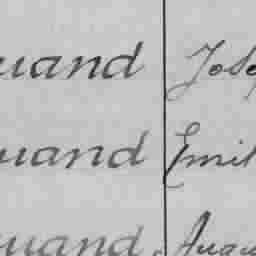 uand Jose
uand Emil
uand Augu